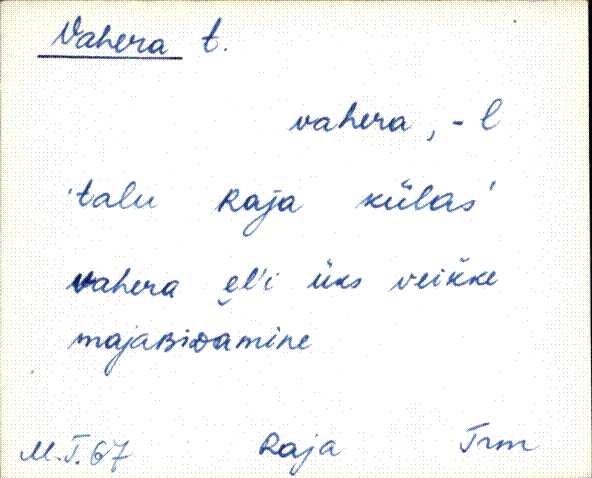 Vahera t.
vahera, -l
'talu Raja külas'
vahera ĕl'i üks veikke
majaʙiᴅamine
M.T.67 Raja Trm